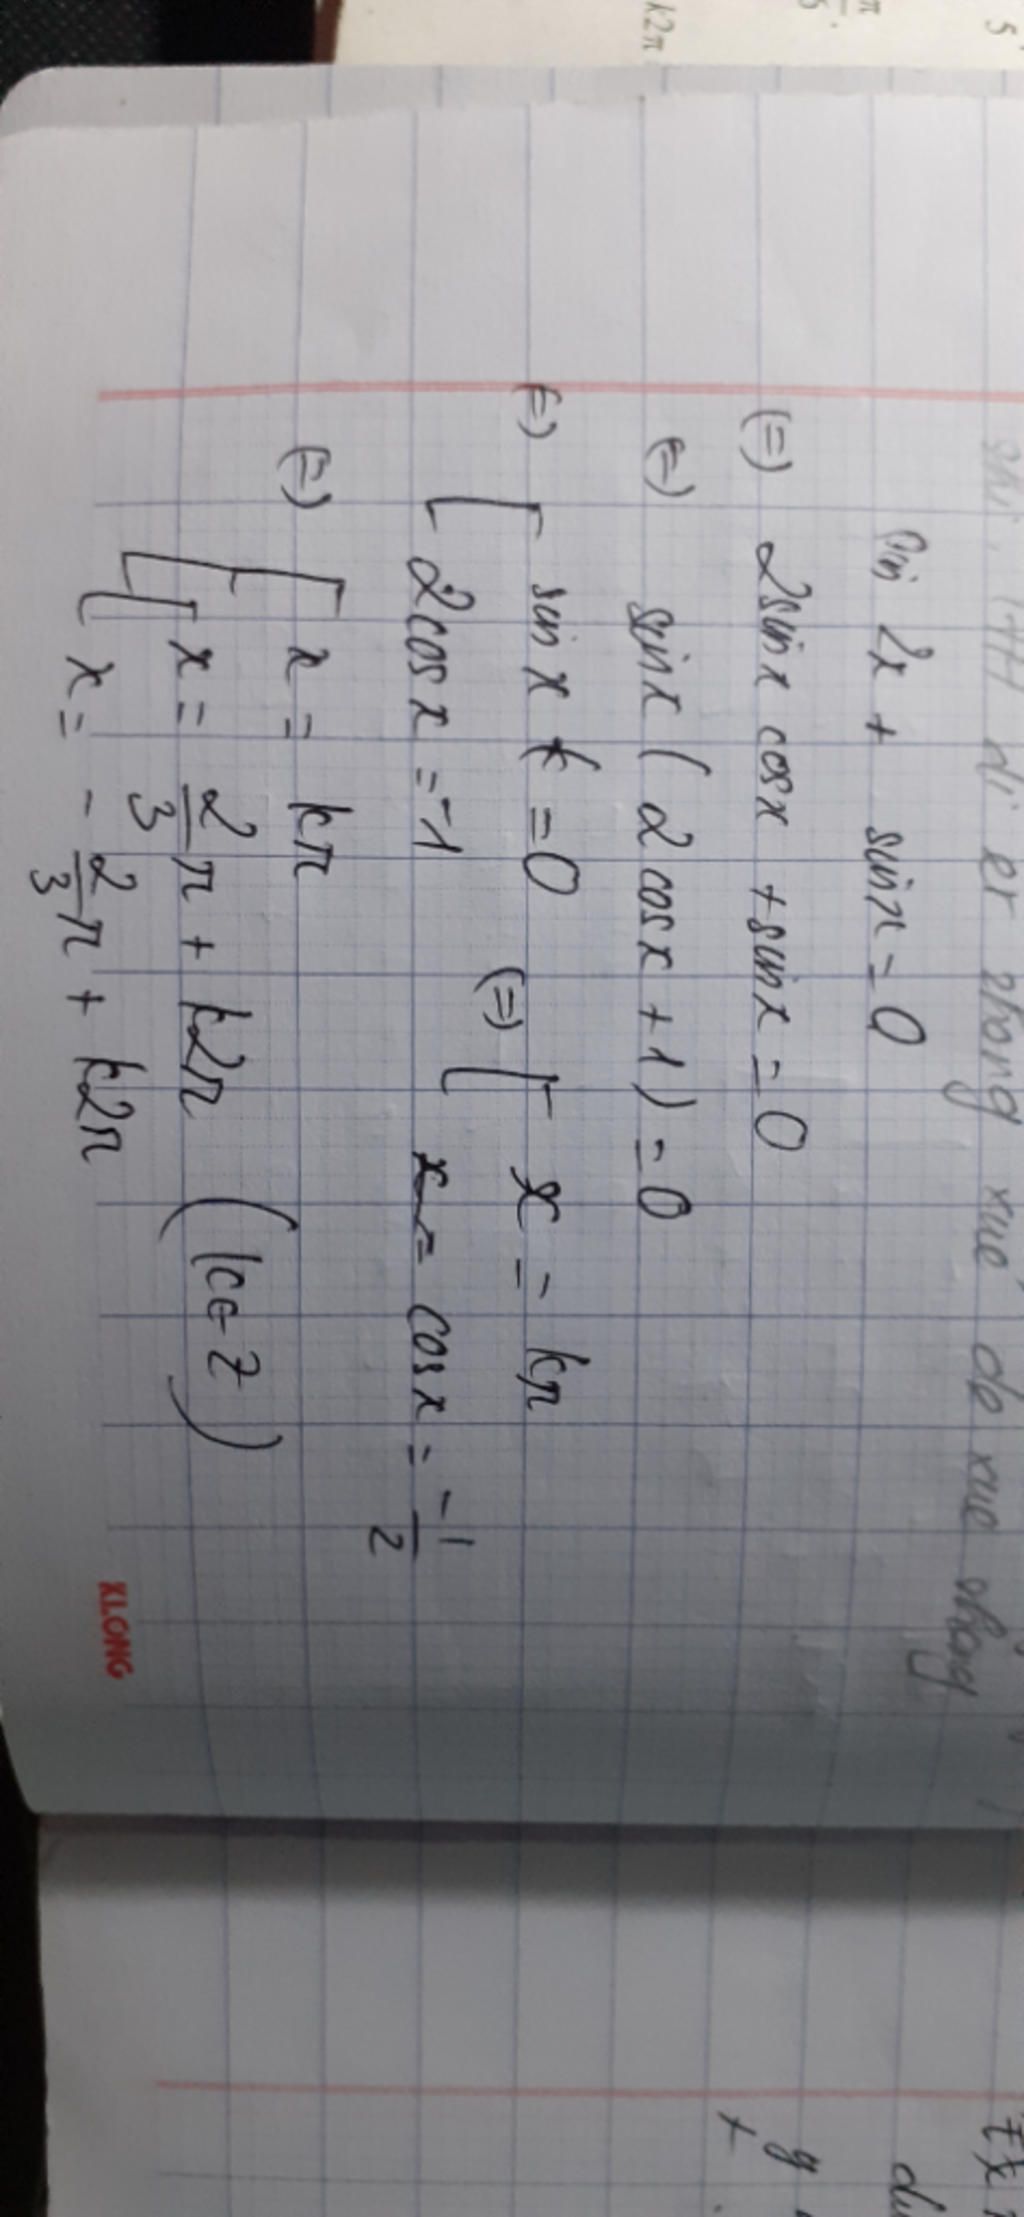 k2π
5
sin 2x + sin x = 0
(=) 2sin x cos x + sin x = 0
(=) sin x ( 2 cos x + 1) = 0
(=) [ sin x = 0 (=) [ x = kπ
2cos x = -1 cos x = -1/2
(=) [ x = kπ
[ x = 2/3 π + k2π (k ∈ Z)
x = - 2/3 π + k2π
XLONG